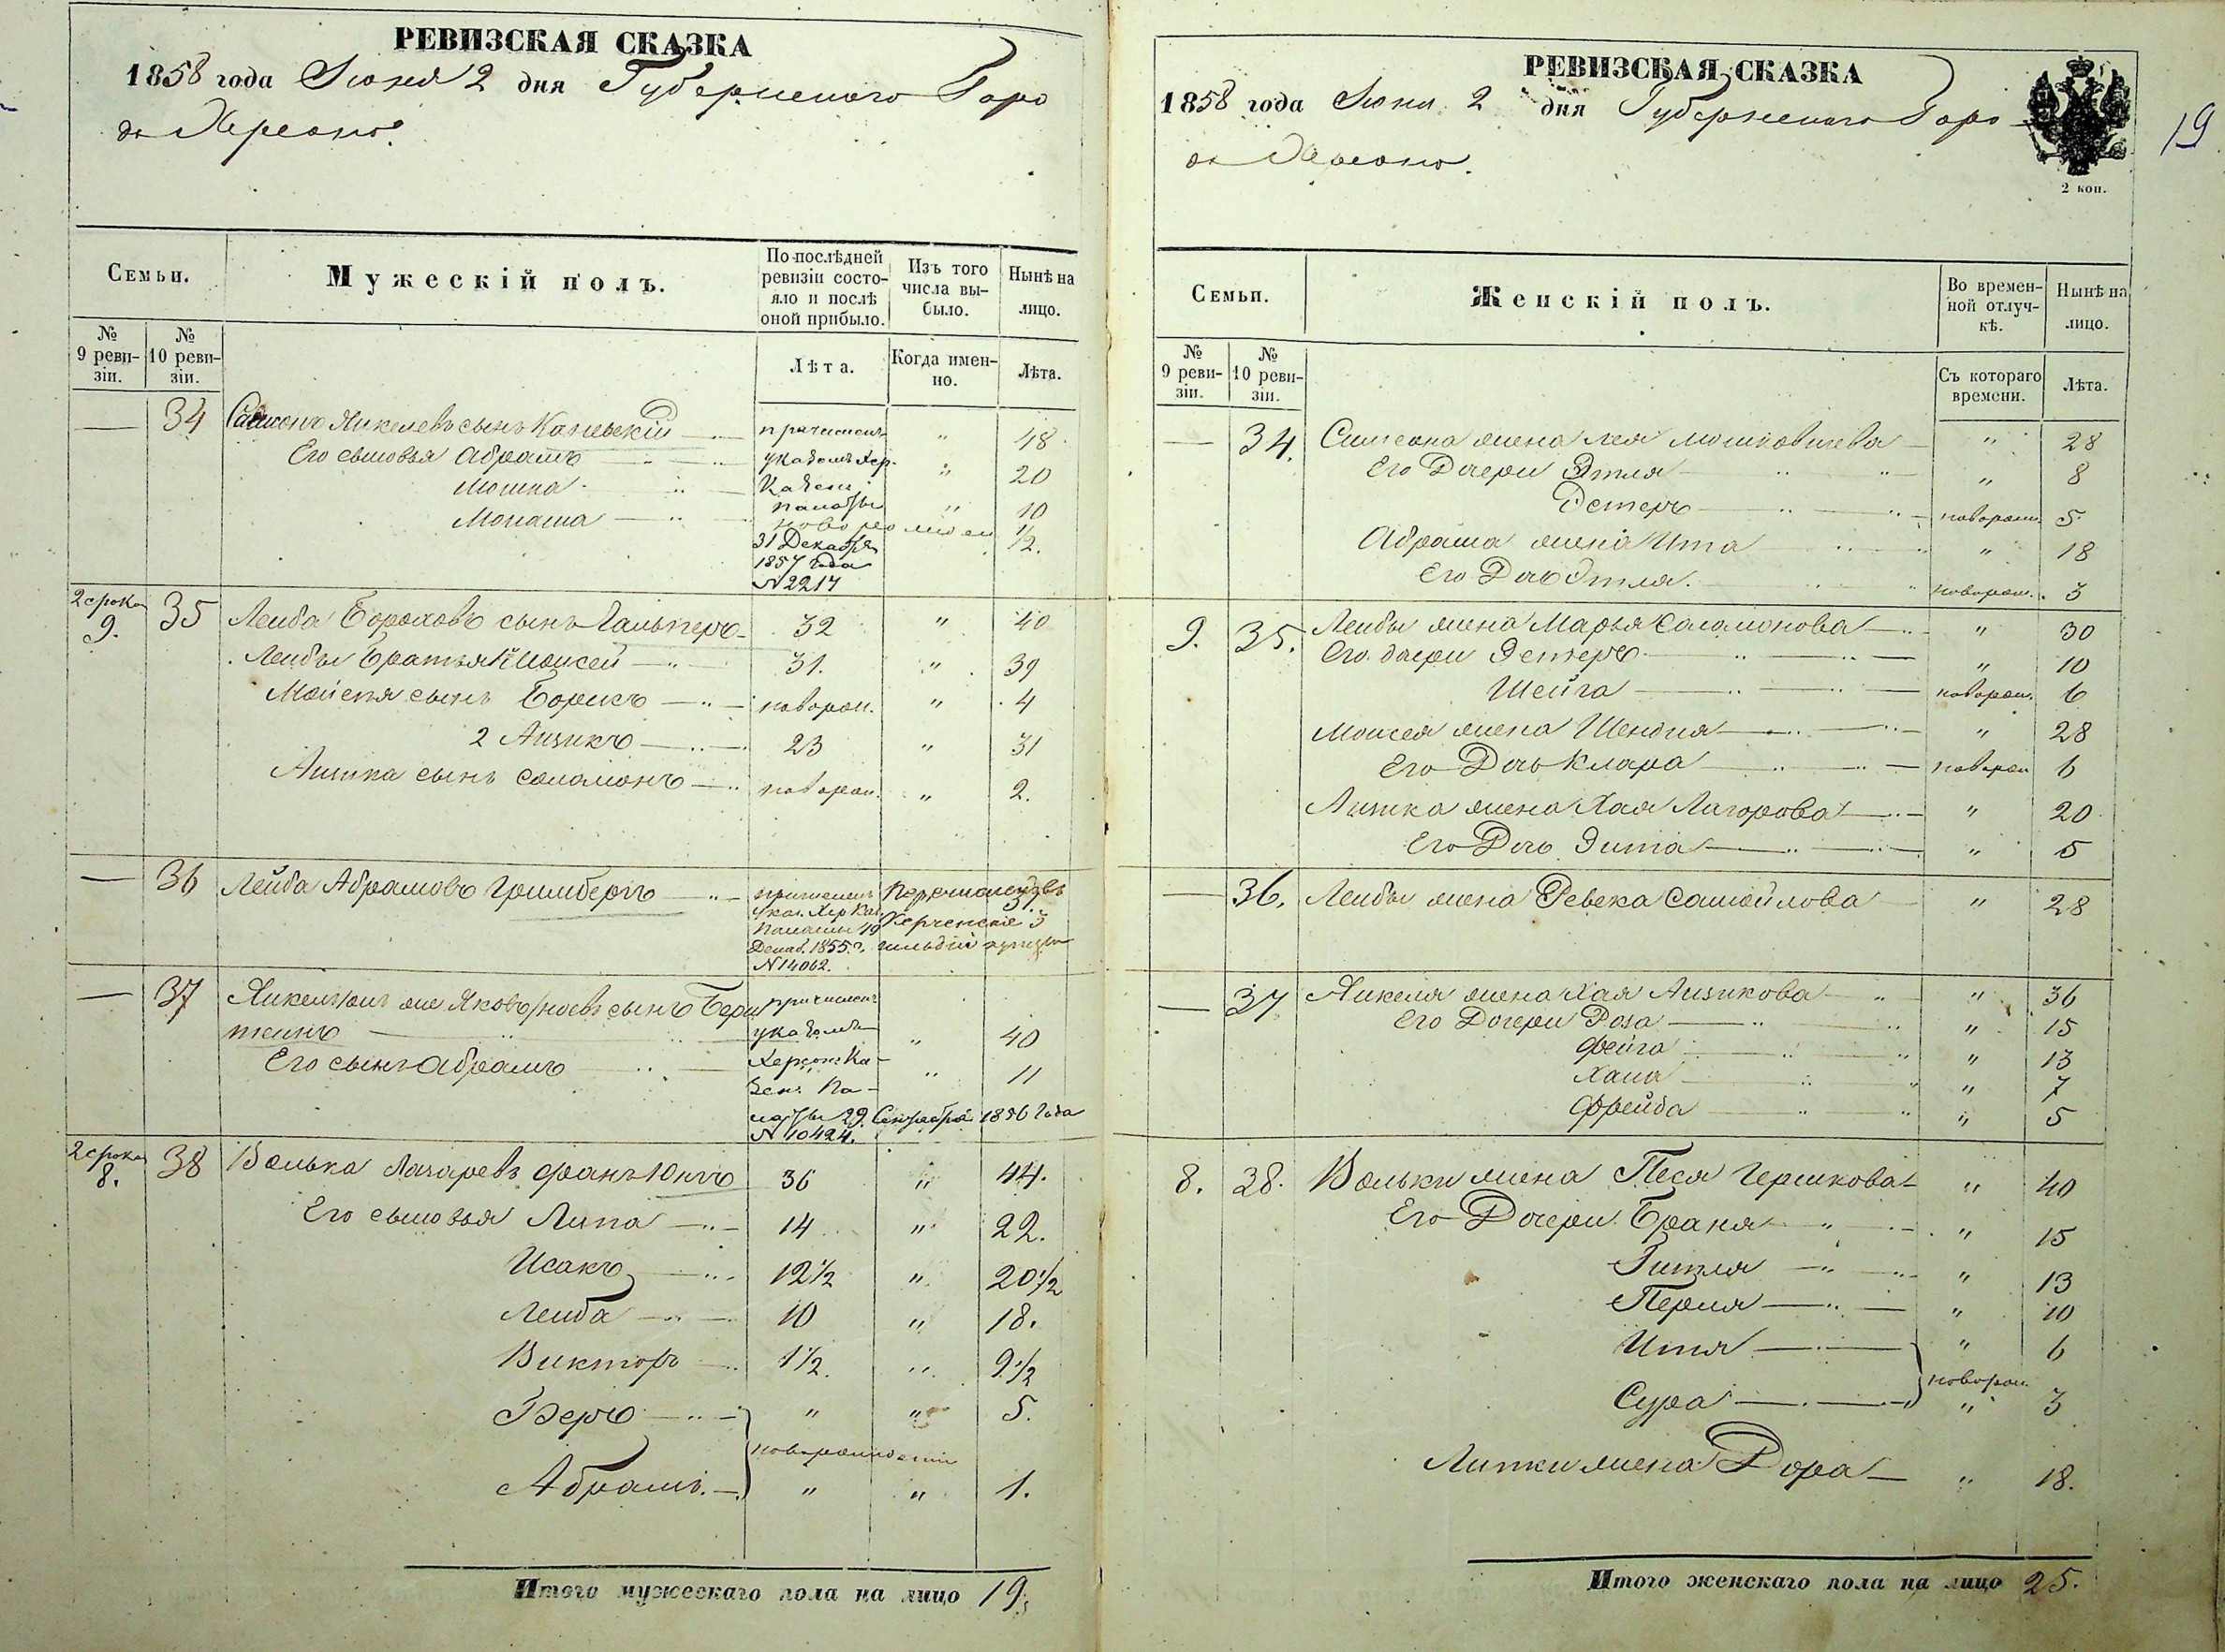 РЕВИЗСКАЯ СКАЗКА
1858 года Июня 2 дня Губернскаго Горо
да Херсона.
Семьи.
Мужескій полъ.
По послѣдней ревизіи состояло и послѣ оной прибыло.
Изъ того числа выбыло.
Нынѣ на лицо.
№ 9 ревизіи.
№ 10 ревизіи.
Лѣта.
Когда именно.
Лѣта.
— 34 Янкелевъ сынъ Каневскій причисленъ " 48
Его сыновья Абрамъ указомъ Хер. " 20
Мошка Казен. палаты " 10
Монаша новорожден 1/2.
31 Декабря
1857 года
№ 2217
2 срока 9. 35 Лейба Бороховъ сынъ Гальперъ 32 " 40
Лейбы братья 1й Моисей 31. " 39
Мойсея сынъ Борисъ новорож. " 4
2 Айзикъ 23 " 31
сынъ Соломонъ новорож. " 2.
— 36 Лейба Абрамовъ Гринбергъ причисленъ
указ. Хер Каз. Керченскіе 3
Палаты 19 гильдіи купцы
Декаб. 1855 г.
№ 14062.
— 37 Янкель онъ же Яковъ сынъ Берн причисленъ
штейнъ указомъ " 40
Его сынъ Абрамъ Херсон. Ка- " 11
зен. Па-
латы 29 Сентября 1856 года
№ 10424.
2 срока 8. 38 Волька Лазаревъ фанъ-Юнгъ 36 " 44.
Его сыновья Липа 14 " 22.
Исакъ 12 1/2 " 20 1/2
Лейба 10 " 18.
Викторъ 1 1/2. " 9 1/2
Беръ " " 5.
новорожденни
Абрамъ. " " 1.
Итого мужескаго пола на лицо 19.
РЕВИЗСКАЯ СКАЗКА
1858 года Июня 2 дня Губернскаго Горо
да Херсона.
2 коп.
19
Семьи.
Женскій полъ.
Во временной отлучкѣ.
Нынѣ на лицо.
№ 9 ревизіи.
№ 10 ревизіи.
Съ котораго времени.
Лѣта.
— 34. жена Лея Мошковичева " 28
Его Дочери Этля " 8
Эстеръ новорож. 5
Абрама жена Ита " 18
Его Дочь Этля. новорож. 3
9. 35. Лейбы жена Марья Саломонова " 30
Его дочери Эстеръ " 10
Шейга новорож. 6
Моисея жена Шендля " 28
Его Дочь Клара новорож 6
жена Хая Лазорова " 20
Его Дочь Эита " 5
— 36. Лейбы жена Ревека Самойлова " 28
— 37 Янкеля жена Хая Айзикова " 36
Его Дочери Роза " 15
Фейга " 13
Хана " 7
Фрейда " 5
8. 38. Вольки жена Песя Гершкова " 40
Его Дочери Браня " 15
Гитля " 13
Перля " 10
Итя " 6
новорож.
Сура " 3
Липки жена Дора " 18.
Итого женскаго пола на лицо 25.